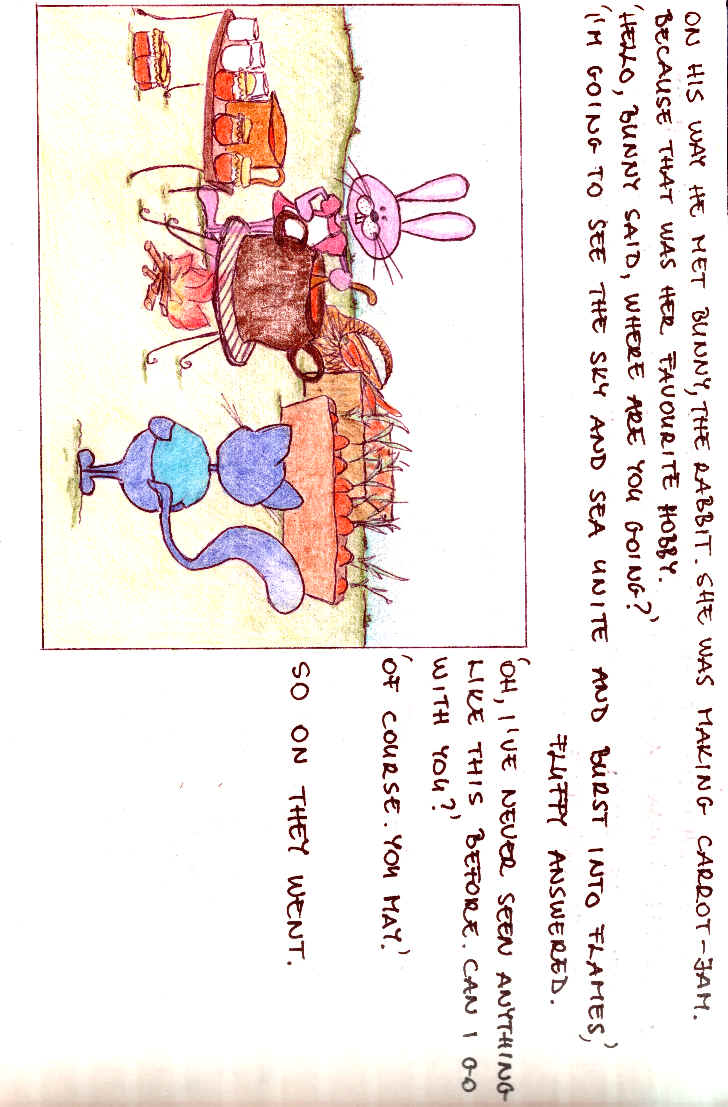 ON HIS WAY HE MET BUNNY, THE RABBIT. SHE WAS MAKING CARROT-JAM.
BECAUSE THAT WAS HER FAVOURITE HOBBY.
'HELLO, BUNNY SAID, WHERE ARE YOU GOING?'
'I'M GOING TO SEE THE SKY AND SEA UNITE AND BURST INTO FLAMES,'
FLUFFY ANSWERED.
'OH, I'VE NEVER SEEN ANYTHING
LIKE THIS BEFORE. CAN I GO
WITH YOU?'
'OF COURSE. YOU MAY.'
SO ON THEY WENT.